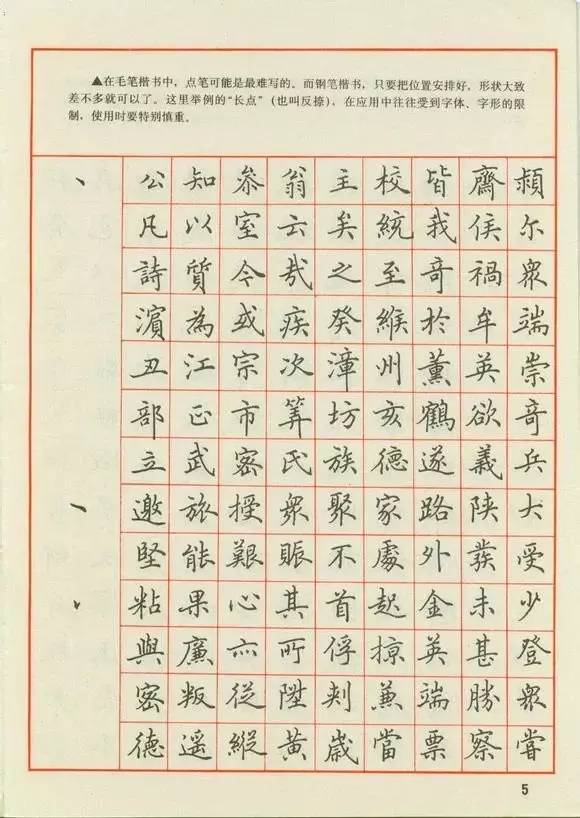 ▲在毛笔楷书中，点笔可能是最难写的。而钢笔楷书，只要把位置安排好，形状大致
差不多就可以了。这里举例的“长点”（也叫反捺），在应用中往往受到字体、字形的限
制，使用时要特别慎重。
公知叅翁主校皆齋頻
凡以室云矣統我侯尔
詩質今哉之至奇禍衆
濵為或疾癸緱於牟端
丑江宗次漳州薰英崇
部正市筭坊亥鶴欲奇
立武密氏族德遂義兵
邀旅授衆聚家路陕大
堅能艱賑不處外蕟受
粘果心其首起金未少
與廉亦所俘掠英甚登
密叛從陞刺兼端勝衆
德遥縱黄歲當票察嘗
5